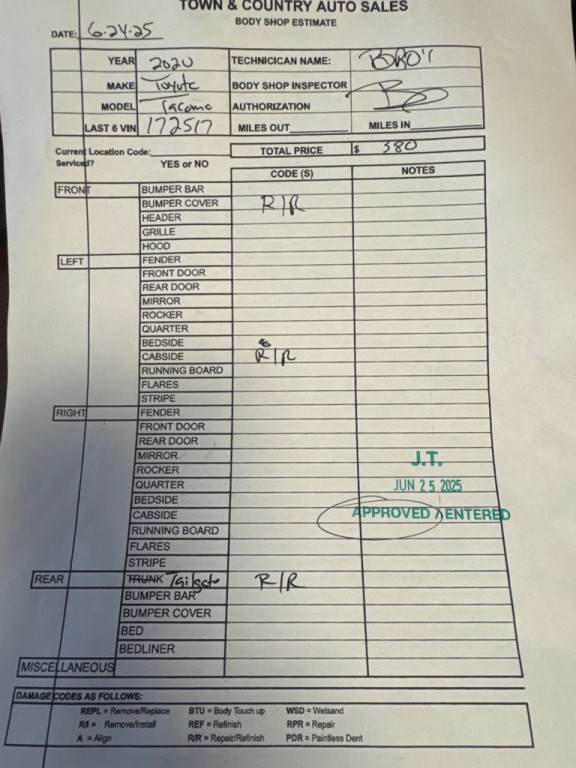 TOWN & COUNTRY AUTO SALES
BODY SHOP ESTIMATE
DATE: 6-24-25
YEAR 2020 TECHNICICAN NAME: BORO'S
MAKE Toyota BODY SHOP INSPECTOR
MODEL Tacoma AUTHORIZATION
LAST 6 VIN 172517 MILES OUT MILES IN
Current Location Code: TOTAL PRICE $ 380
Serviced? YES or NO CODE (S) NOTES
FRONT BUMPER BAR
BUMPER COVER R/R
HEADER
GRILLE
HOOD
LEFT FENDER
FRONT DOOR
REAR DOOR
MIRROR
ROCKER
QUARTER
BEDSIDE
CABSIDE R/R
RUNNING BOARD
FLARES
STRIPE
RIGHT FENDER
FRONT DOOR
REAR DOOR
MIRROR J.T.
ROCKER
QUARTER JUN 25 2025
BEDSIDE
CABSIDE APPROVED / ENTERED
RUNNING BOARD
FLARES
STRIPE
REAR TRUNK Tailgate R/R
BUMPER BAR
BUMPER COVER
BED
BEDLINER
MISCELLANEOUS
DAMAGE CODES AS FOLLOWS:
REPL = Remove/Replace BTU = Body Touch up WSD = Wetsand
R/I = Remove/Install REF = Refinish RPR = Repair
A = Align R/R = Repair/Refinish PDR = Paintless Dent